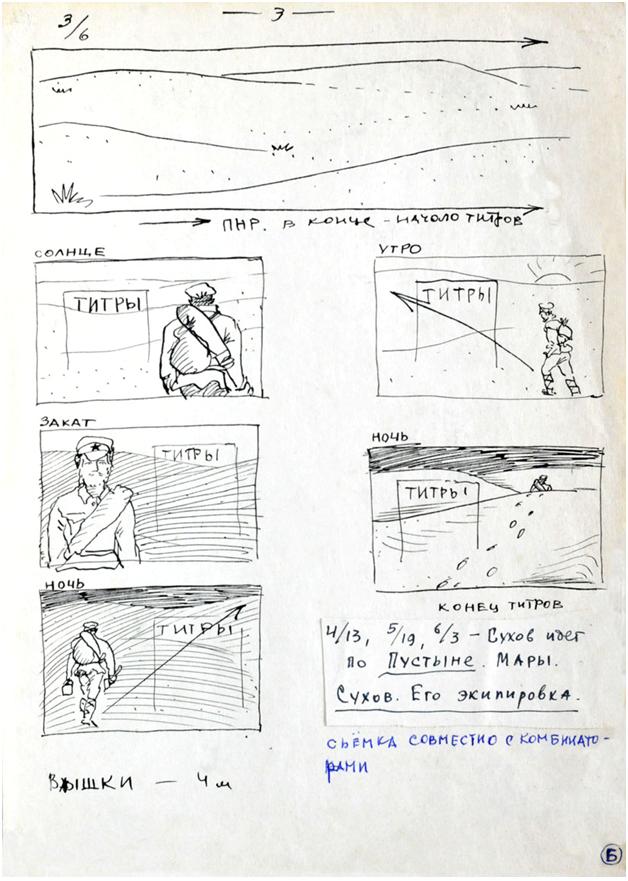 3/6
— 3 —
ПНР. В КОНЦЕ - НАЧАЛО ТИТРОВ
СОЛНЦЕ
ТИТРЫ
УТРО
ТИТРЫ
ЗАКАТ
ТИТРЫ
НОЧЬ
ТИТРЫ
КОНЕЦ ТИТРОВ
НОЧЬ
ТИТРЫ
4/13, 5/19, 6/3 - Сухов идет
по Пустыне. МАРЫ.
Сухов. Его экипировка.
СЪЁМКА СОВМЕСТНО С КОМБИНАТО-
РАМИ
ВЫШКИ — 4 м
Б